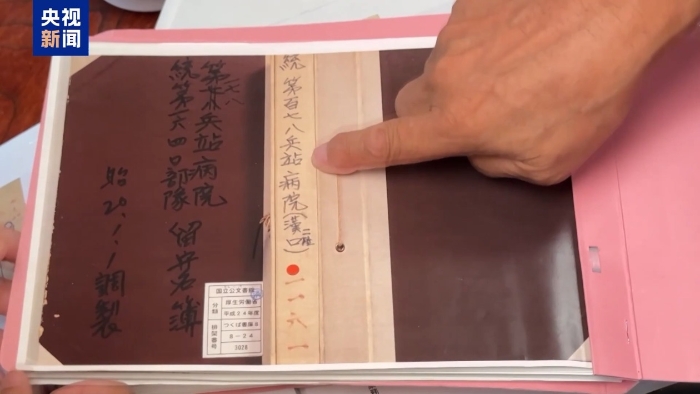 央视
新闻
統 第百七八兵站病院(漢口)
一一六八一
一七八
第 兵站病院
統第一六四〇部隊 留守名簿
昭20.1.1調製
国立公文書館
分類
厚生労働省
平成24年度
つくば書庫8
排架番号
8-24
3028